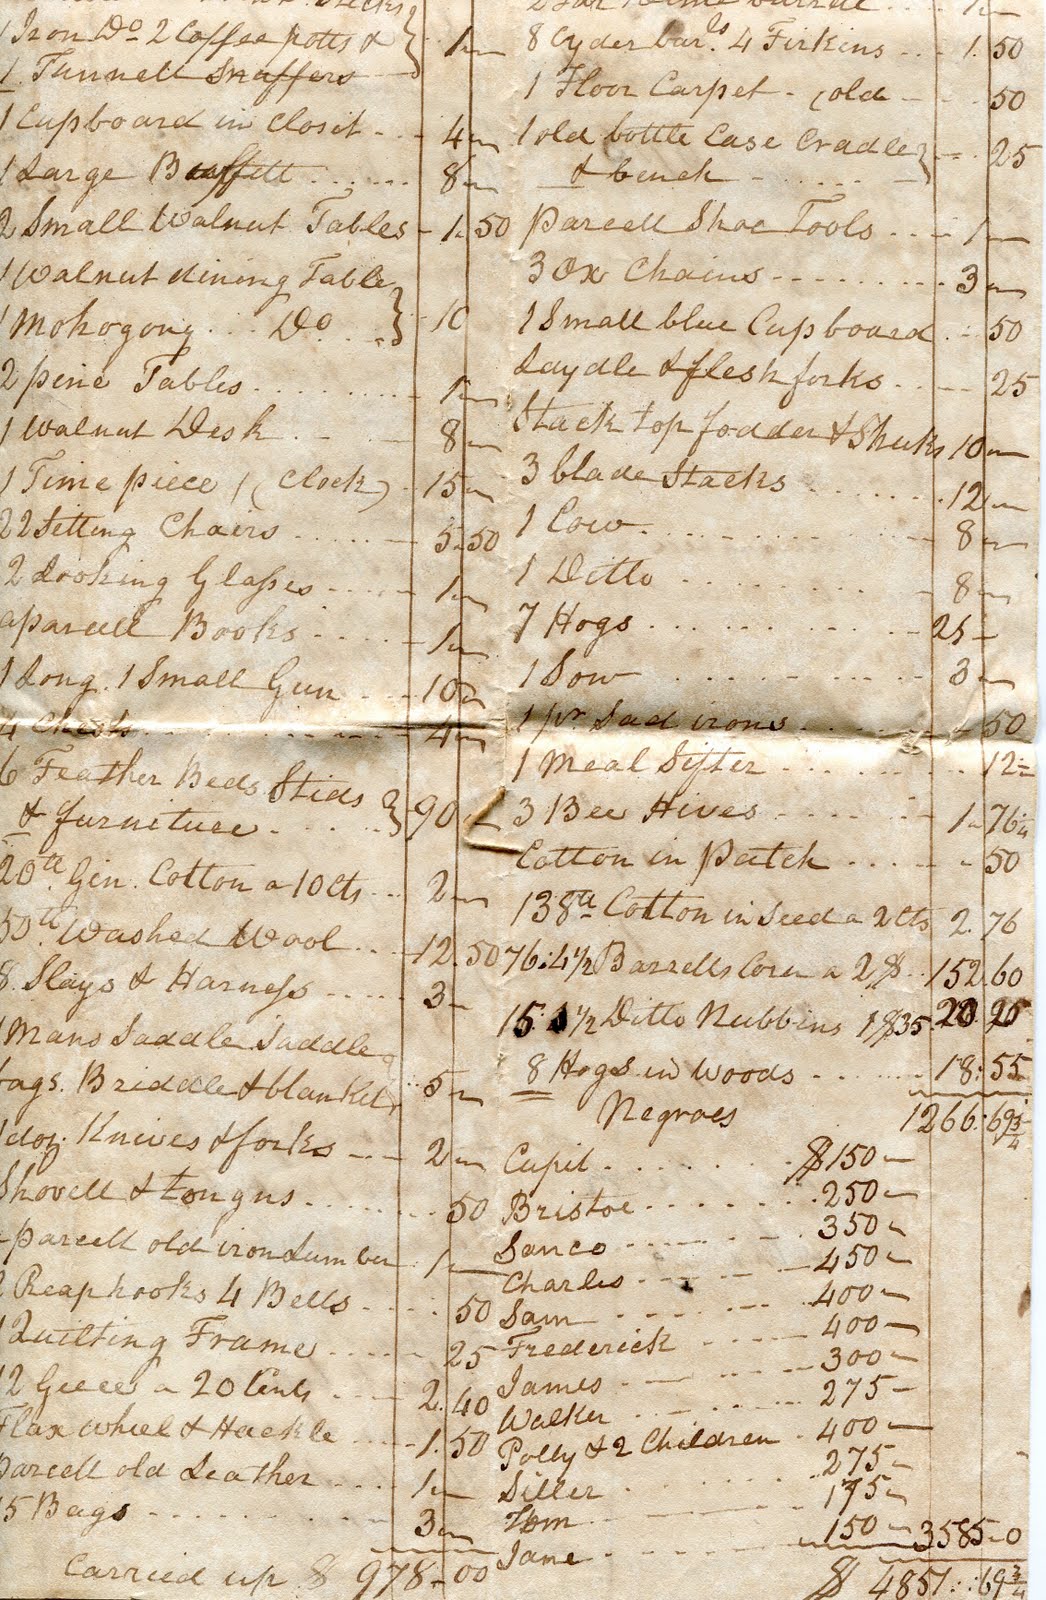 1 Iron Do 2 Coffee potts &
1 Tunnell Snuffers } 1"
1 Cupboard in Closit - - - 4"
1 Large Buffett ...... 8"
2 Small Walnut Tables - 1.50
1 Walnut dining Table
1 Mohogony ... Do ... } 10
2 pine Tables ........ 1"
1 Walnut Desk . - - 8"
1 Time piece / (Clock) . 15"
22 Sitting Chairs ..... 5.50
2 Looking Glasses ..... 1"
a parcell Books ..... 1"
1 Long. 1 Small Gun ... 10"
4 Chests ........ 4"
6 Feather Beds Stids
& furniture ...... } 90
20 lb Gin. Cotton a 10 Cts ... 2"
50 lb Washed Wool .. 12.50
8 Slays & Harness ..... 3"
1 Mans Saddle Saddle
bags. Briddle & blanket } 5"
1 doz. Knives & forks - - - 2"
Shovell & tongus ........ 50
parcell old iron Lumber . 1"
2 Reaphooks 4 Bells .... 50
1 Quilting Frame ..... 25
12 Geece a 20 Cents ... 2.40
Flax wheel & Hackle .... 1.50
parcell old Leather .... 1"
15 Bags ......... 3"
Carried up $ 978-00
8 Cyder barls 4 Firkins - - 1.50
1 Floor Carpet - (old - - - 50
1 old bottle Case Cradle
& bench - ..... } - - 25
parcell Shoe Tools .. - - 1"
3 Ox Chains - - - - - - - - 3"
1 Small blue Cupboard . - 50
Laydle & flesh forks .. - - 25
Stack top fodder & Shuks 10"
3 blade Stacks ....... 12"
1 Cow ........... 8"
1 Ditto ......... 8"
7 Hogs ......... 25 -
1 Sow ......... 3"
1 pr Sad irons ....... 50
1 Meal Sifter ....... 12
3 Bee Hives ...... 1"76 1/4
Cotton in Patch .... " 50
138 lb Cotton in seed a 2 cts 2.76
76:4 1/2 Barrells Corn a 2$ .. 152.60
15: 1/2 Ditto Nubbins 1$35
8 Hogs in Woods ....... 18:55
1266:69 3/4
Negroes
Cupit ........ $150 -
Bristoe ........ 250 -
Sanco ........ 350 -
Charles ........ 450 -
Sam ........ 400 -
Frederick ..... 400 -
James ....... 300 -
Walker ....... 275 -
Polly & 2 Children . 400 -
Siller ....... 275 -
Tom ........ 175 -
Jane ........ 150 - 3585-0
$ 4851::69 3/4